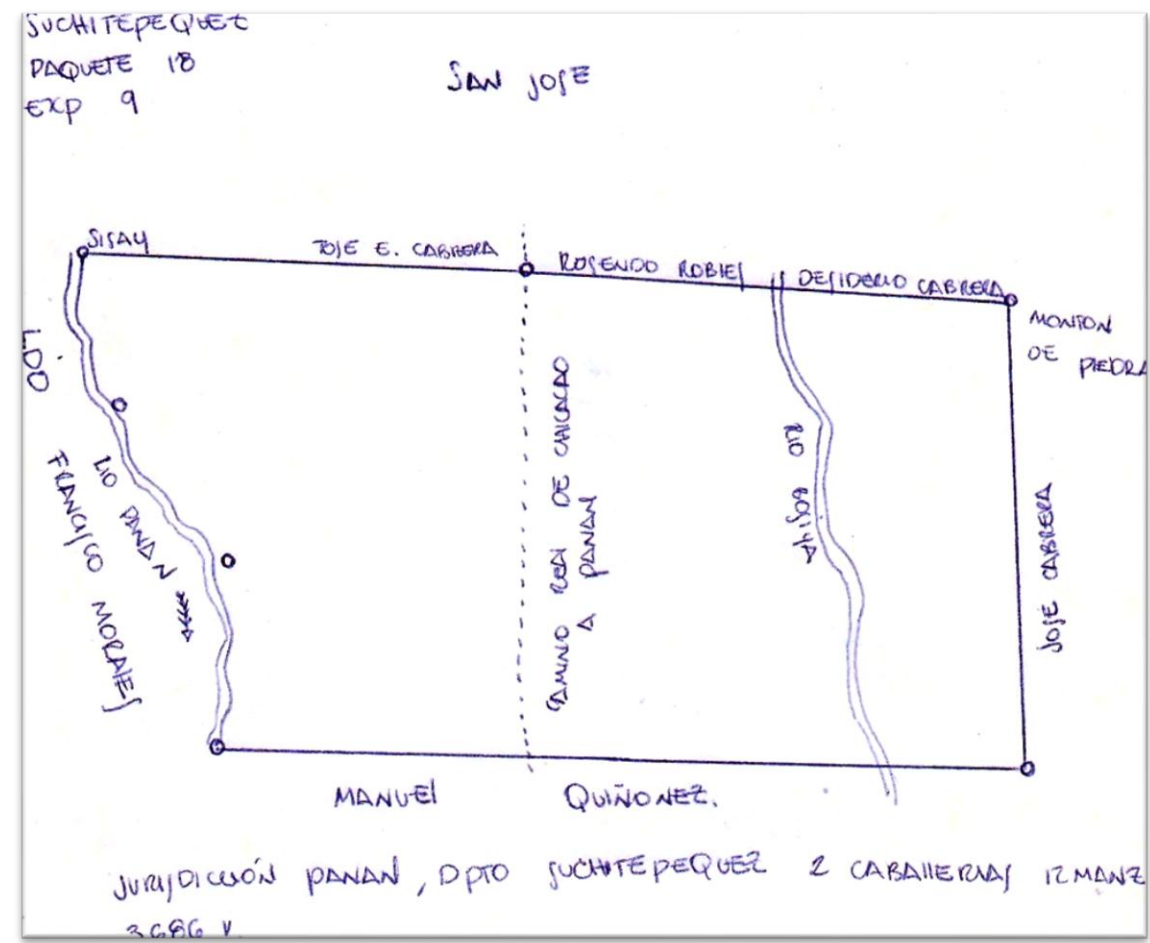 SUCHITEPEQUEZ
PAQUETE 18
EXP 9
SAN JOSE
SISAY
JOSE E. CABRERA
ROSENDO ROBLES
DESIDERIO CABRERA
MONTON
DE PIEDRA
LDO
FRANCISCO MORALES
RIO PANAN
CAMINO REAL DE CHICACAO
A PANAN
RIO
JOSE CABRERA
MANUEL QUIÑONEZ.
JURISDICCIÓN PANAN, DPTO SUCHITEPEQUEZ 2 CABALLERIAS 12 MANZ
3686 V.